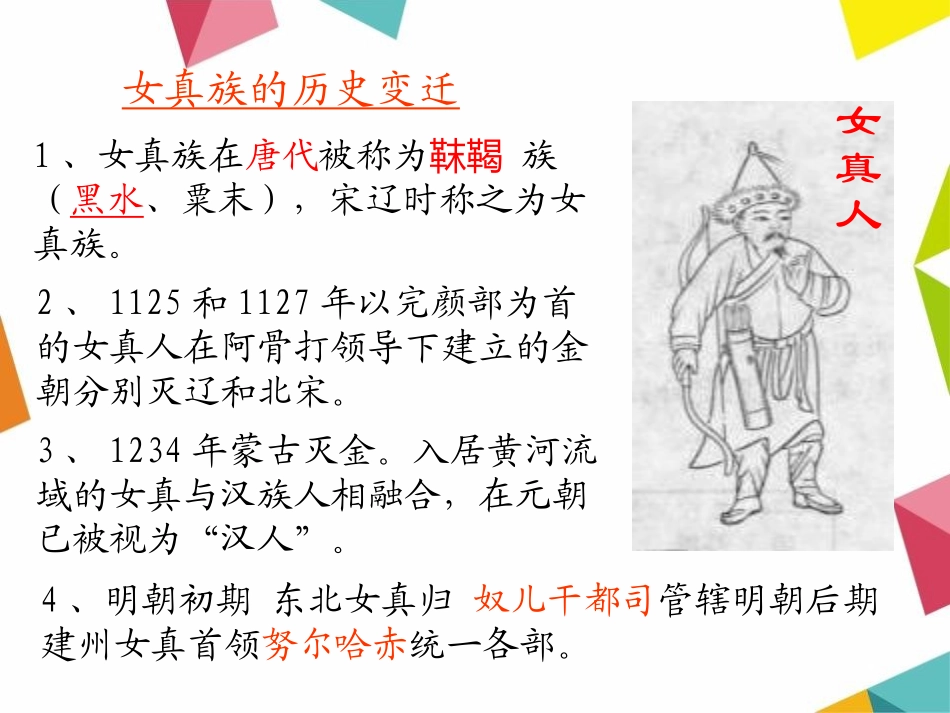 女真族的历史变迁
1、女真族在唐代被称为靺鞨 族
（黑水、粟末），宋辽时称之为女
真族。
2、1125和1127年以完颜部为首
的女真人在阿骨打领导下建立的金
朝分别灭辽和北宋。
3、1234年蒙古灭金。入居黄河流
域的女真与汉族人相融合，在元朝
已被视为“汉人”。
4、明朝初期 东北女真归 奴儿干都司管辖明朝后期
建州女真首领努尔哈赤统一各部。
女真人